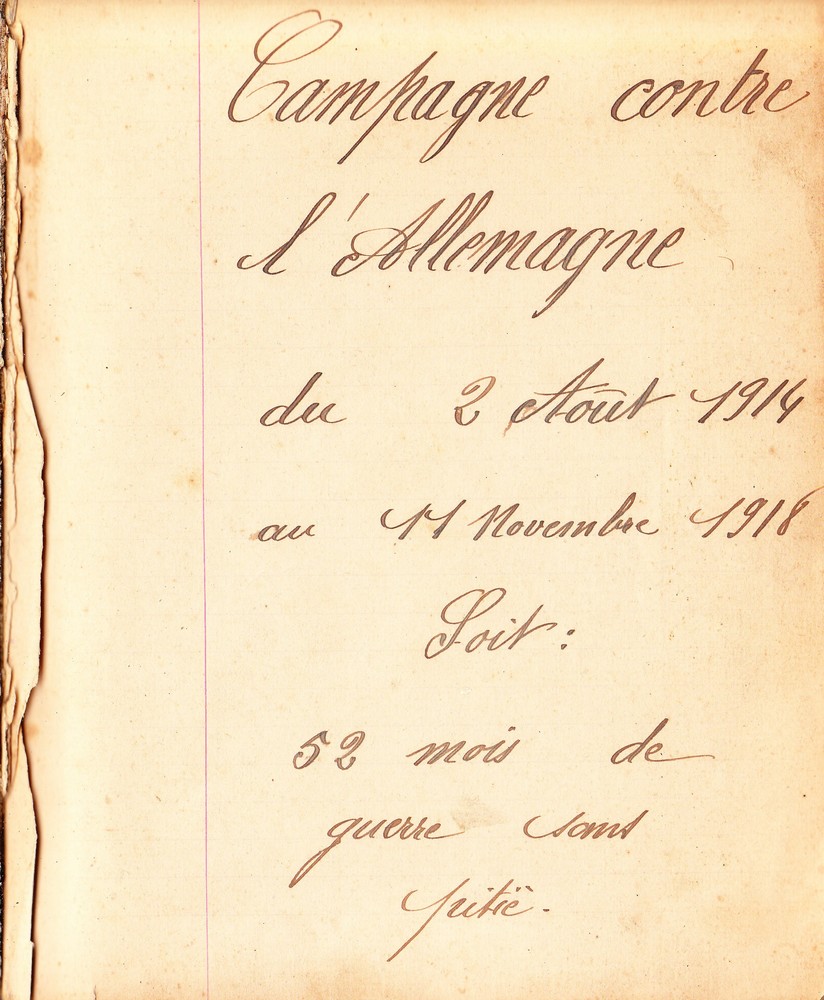 Campagne contre
l'Allemagne
du 2 Août 1914
au 11 Novembre 1918
Soit :
52 mois de
guerre sans
pitié.